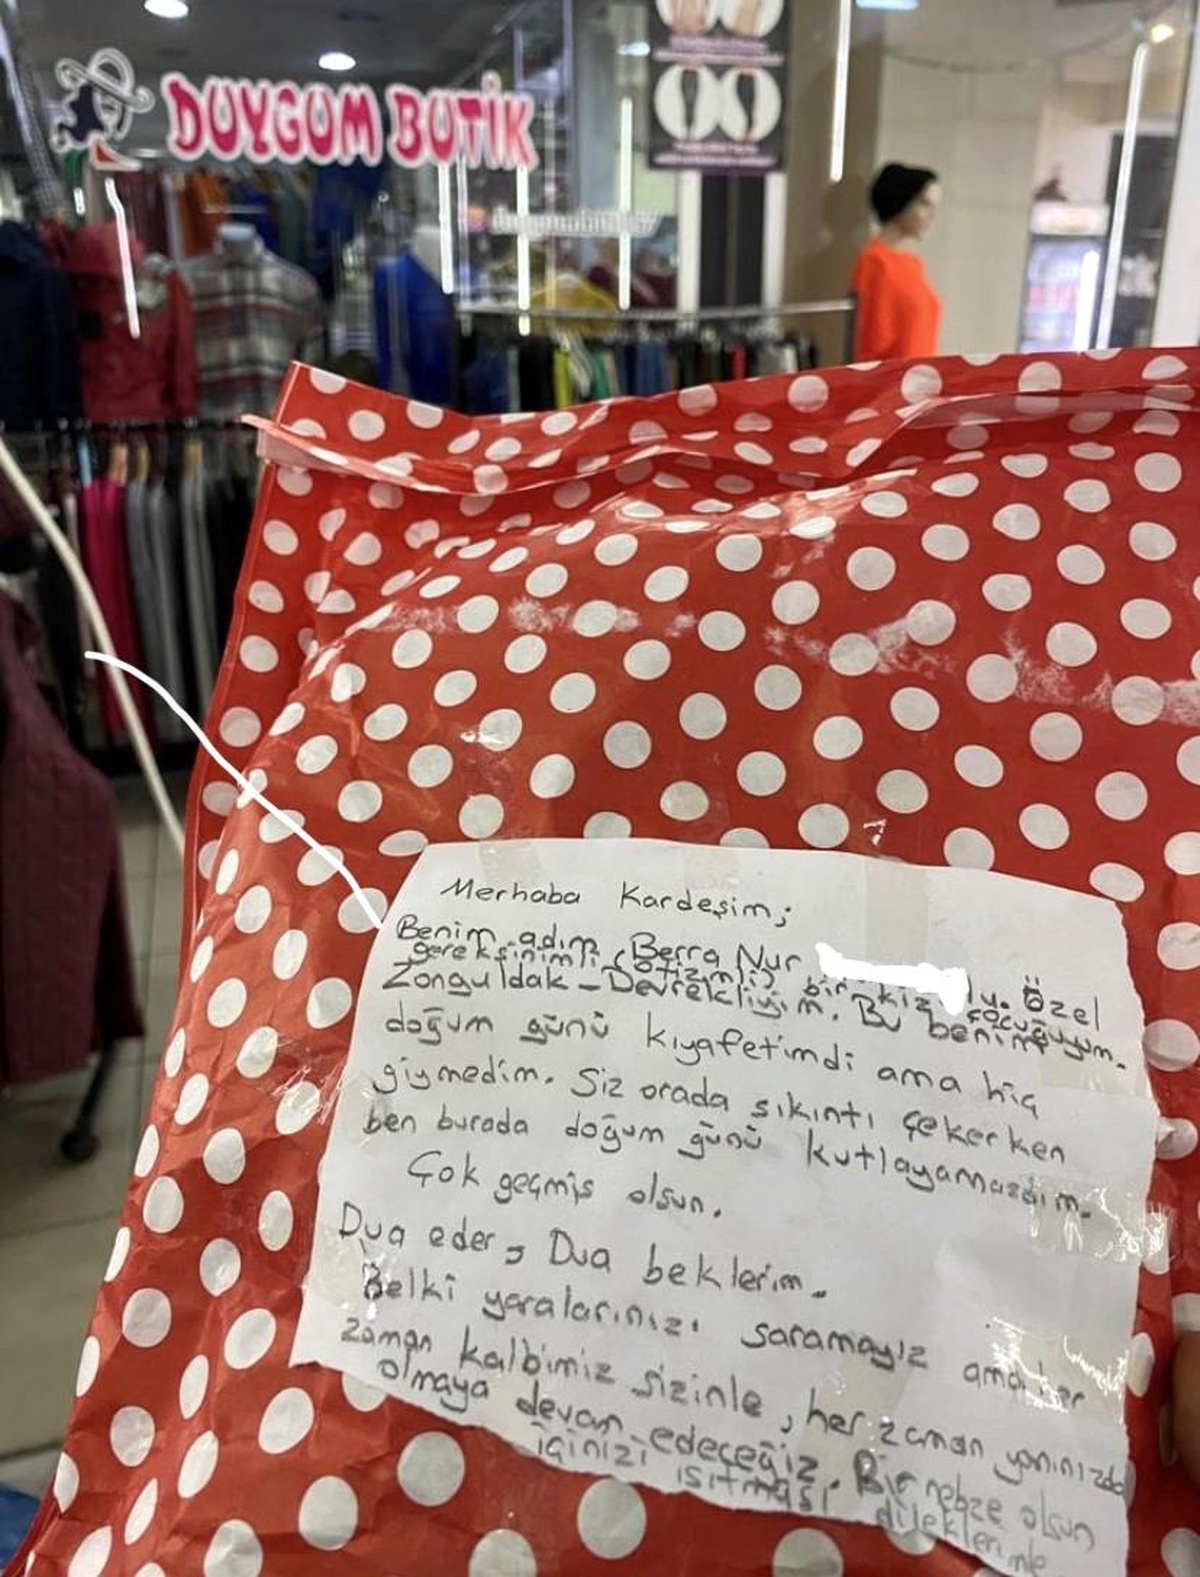 DUYGUM BUTİK
Merhaba Kardeşim;
Benim adım Berra Nur Özel
gereksinimli (otizmli) bir kız çocuğuyum.
Zonguldak - Devrekliyim. Bu benim
doğum günü kıyafetimdi ama hiç
giymedim. Siz orada sıkıntı çekerken
ben burada doğum günü kutlayamazdım.
Çok geçmiş olsun.
Dua eder, Dua beklerim.
Belki yaralarınızı saramayız ama her
zaman kalbimiz sizinle, her zaman yanınızda
olmaya devam edeceğiz. Bir nebze olsun
içinizi ısıtması dileklerimle